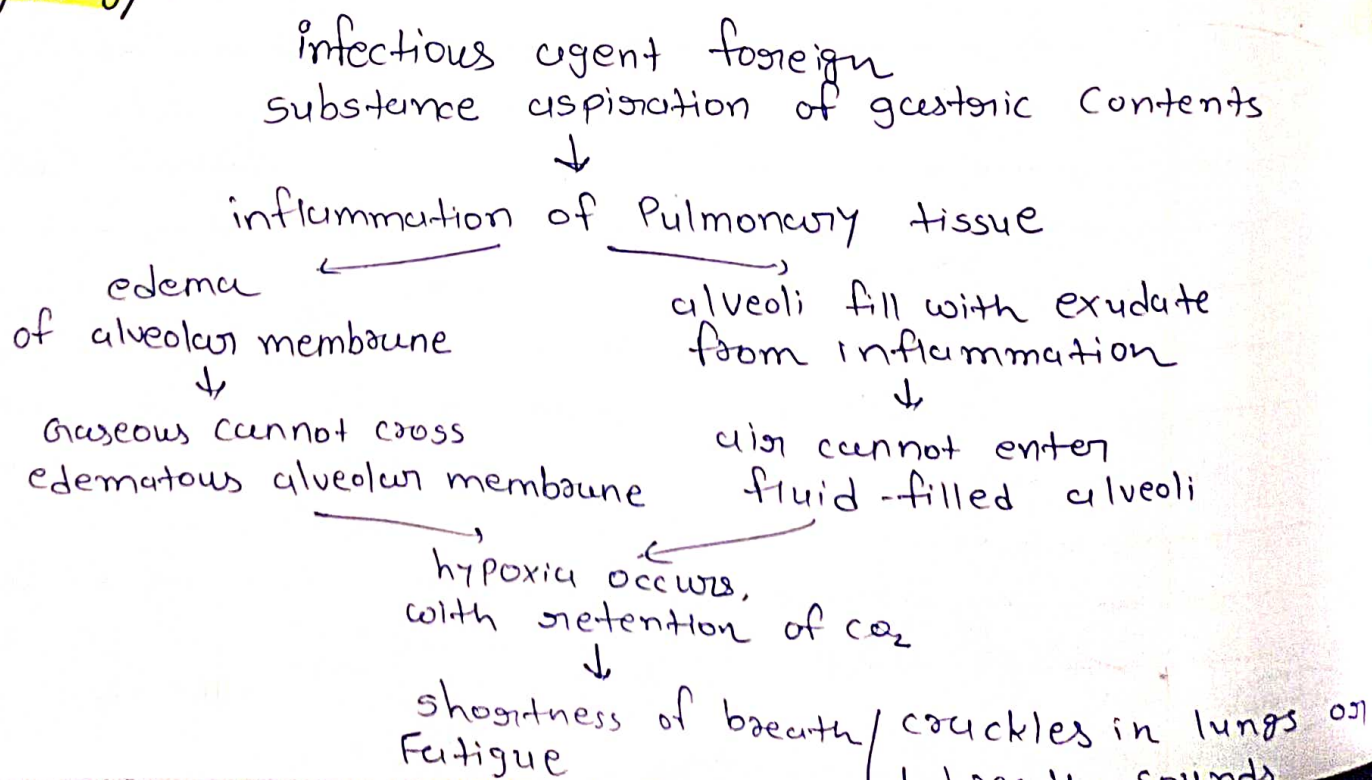 infectious agent foreign
substance aspiration of gastric contents
↓
inflammation of Pulmonary tissue
edema
of alveolar membrane
↓
Gaseous cannot cross
edematous alveolar membrane
alveoli fill with exudate
from inflammation
↓
air cannot enter
fluid-filled alveoli
hypoxia occurs,
with retention of CO2
↓
shortness of breath / crackles in lungs or
Fatigue